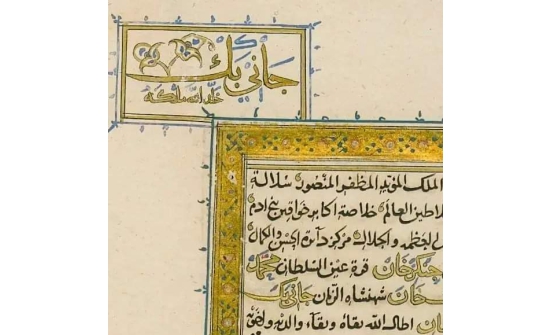 جاني بك
خلد الله ملكه
الملك المؤيد المظفر المنصور سلالة
لاطين العالم خلاصة اكابر خواقين بني ادم
العظمة والجلال مركز دائرة الحسن والكمال
جنكزخان قرة عين السلطان محمد
خان شهنشاه الزمان جاني بك
اطال الله بقاه وبقاء والديه